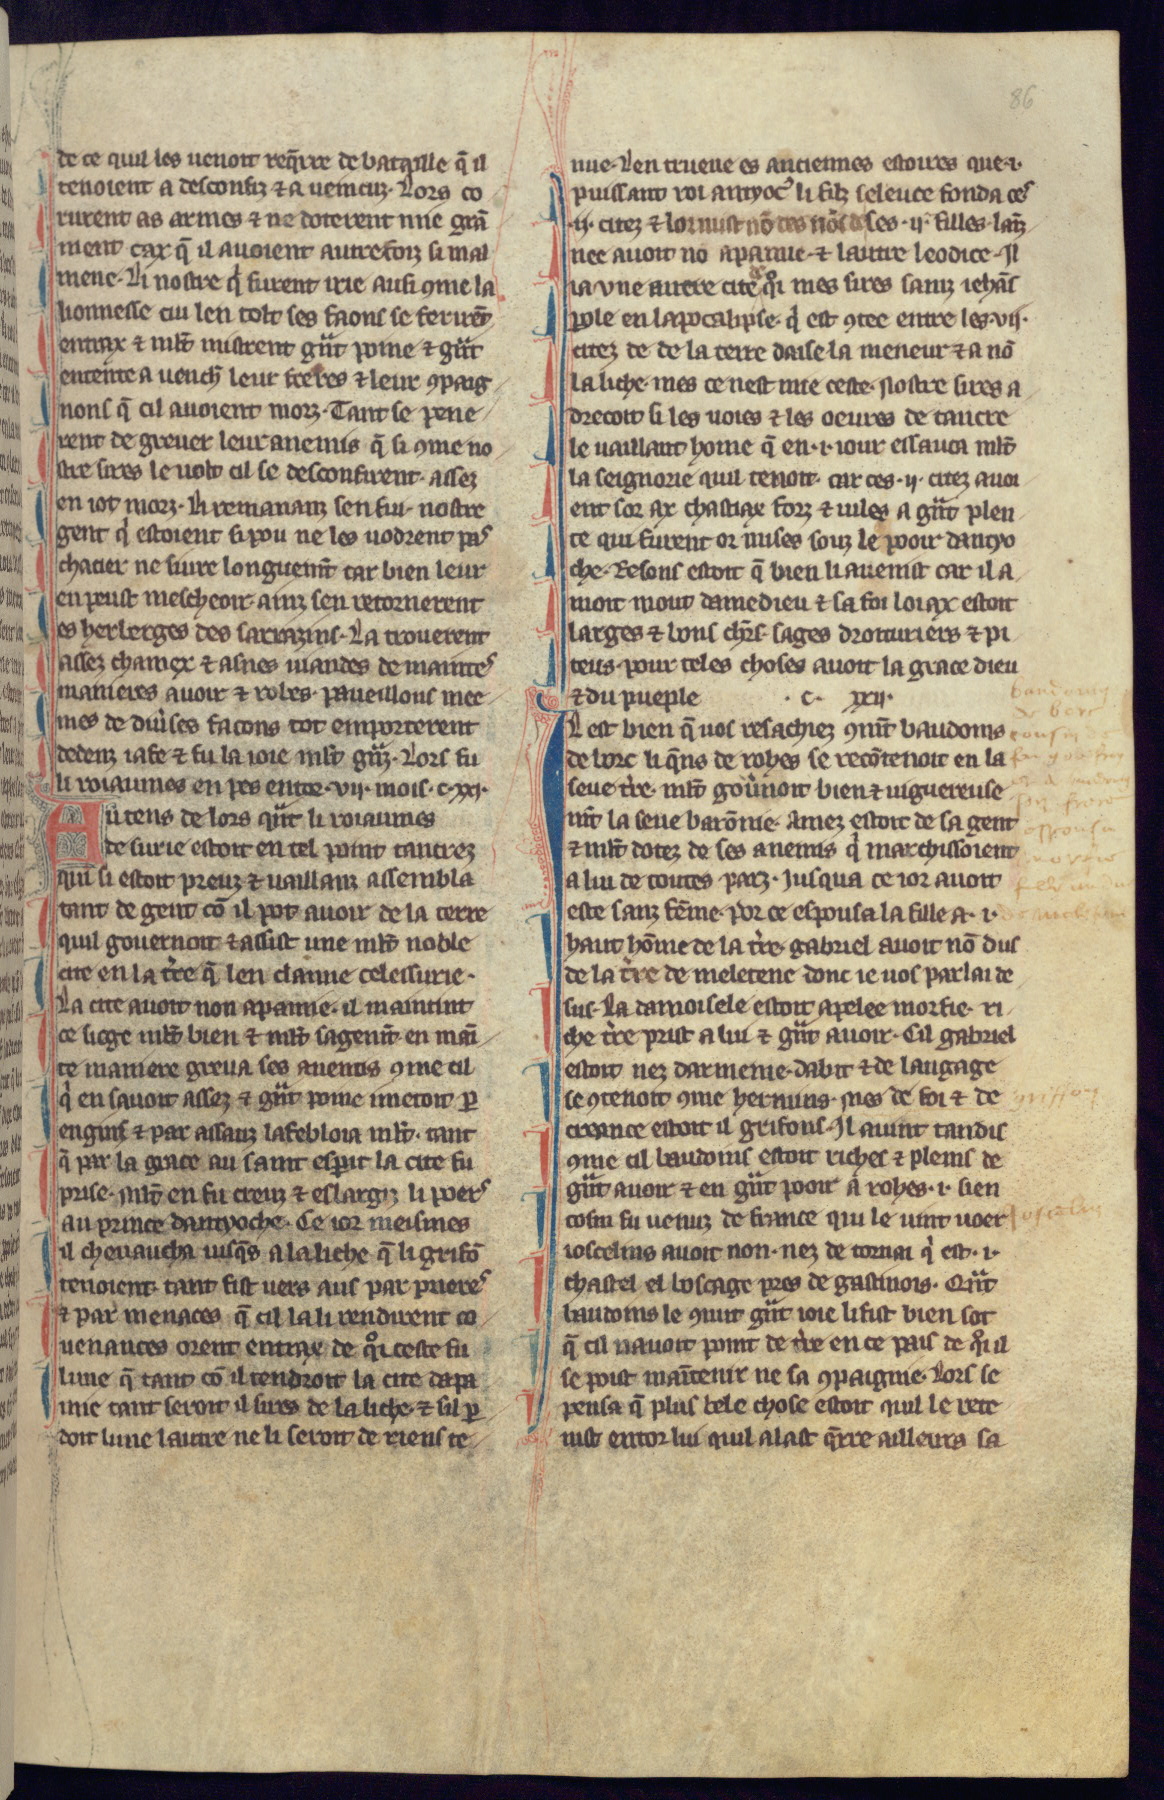 86
de ce quil les uenoit req̄rre de bataille q̄ il
tenoient a desconfiz ⁊ a ueincuz. Lors co
rurent as armes ⁊ ne doterent mie grā
ment cax q̄ il auoient autrefoiz si mal
mene. Li nostre q̇ furent irie ausi ꝯme la
lionnesse cui len tolt ses faons se ferirēt
entrax ⁊ ml̄t mistrent gr̄nt poine ⁊ gr̄nt
entente a uench̄ leur freres ⁊ leur ꝯpaig
nons q̄ cil auoient morz. Tant se pene
rent de greuer leur anemis q̄ si ꝯme no
stre sires le uolt cil se desconfirent. assez
en iot morz. Li remananz sen fui. nostre
gent q̇ estoient si pou ne les uodrent pas
chacier ne suire longuemt̄ car bien leur
en peust mescheoir. ainz sen retornerent
es herberges des sarrazins. La trouerent
assez chamex ⁊ asnes uiandes de maintes
manieres auoir ⁊ robes. paueillons mee
mes de diu̇ses facons tot emporterent
dedenz iafe ⁊ fu la ioie ml̄t gr̄nz. Lors fu
li roiaumes en pes entor .vii. mois. c. xxi.
Au tens de lors qn̄t li roiaumes
de surie estoit en tel point tancrez
qui si estoit preuz ⁊ uaillanz assembla
tant de gent cō il pot auoir de la terre
quil gouernoit ⁊ assist une ml̄t noble
cite en la tr̄re q̄ len claime celessurie.
La cite auoit non apamie. il maintint
ce siege ml̄t bien ⁊ ml̄t sagemt̄. en mai
te maniere greua ses anemis ꝯme cil
q̇ en sauoit assez ⁊ gr̄nt poine imetoit ꝑ
engins ⁊ par assauz lafebloia ml̄t. tant
q̄ par la grace au saint esperit la cite fu
prise. ml̄t en fu creuz ⁊ eslargiz li poers
au prince dantyoche. Ce ior meismes
il cheuaucha iusq̄s a la liche q̄ li grifō
tenoient. tant fist uers aus par prieres
⁊ par menaces q̄ cil la li rendirent co
uenances orent entrax de q̊i ceste fu
lune q̄ tant cō il tendroit la cite dapa
mie tant seroit il sires de la liche. ⁊ sil ꝑ
doit lune lautre ne li seroit de riens te
nue. Len trueue es anciennes estoires que .i.
puissant roi antyoc' li filz seleuce fonda ces
.ii. citez ⁊ lor mist nō des nōs de ses .ii. filles. lainz
nee auoit nō apamie. ⁊ lautre leodice. Il
ia vne autre cite de q̊i mes sires sainz iehās
pole en lapocalipse. q̇ est ꝯtee entre les .vii.
citez de de la terre daise la meneur ⁊ a nō
la liche. mes ce nest mie ceste. Nostre sires a
drecoit si les uoies ⁊ les oeures de tancre
le uaillant home q̄ en .i. iour essauca ml̄t
la seignorie quil tenoit. car ces .ii. citez auoi
ent sor ax chastiax forz ⁊ uiles a gr̄nt plen
te qui furent or mises souz le pooir dantyo
che. Resons estoit q̄ bien li auenist car il a
moit mout damedieu ⁊ sa foi loiax estoit
larges ⁊ bons chr̄s. sages droituriers ⁊ pi
teus. pour teles choses auoit la grace dieu
⁊ du pueple . c. xxii.
Il est bien q̄ uos resachiez ꝯmt̄ baudoins
de borc li q̄ns de rohes se recōtenoit en la
seue tr̄re. ml̄t gou̇noit bien ⁊ uiguereuse
mt̄ la seue barōnie. Amez estoit de sa gent
⁊ ml̄t dotez de ses anemis q̇ marchissoient
a lui de toutes parz. Jusqua ce ior auoit
este sanz fēme. por ce espousa la fille a .i.
haut hōme de la tr̄re. gabriel auoit nō dus
de la tr̄re de meletene donc ie uos parlai de
sus. La damoisele estoit apelee morfie. ri
che tr̄re prist a lui ⁊ gr̄nt auoir. Cil gabriel
estoit nez darmenie. dabit ⁊ de langage
se ꝯtenoit ꝯme hermins. mes de foi ⁊ de
creance estoit il grifons. Il auint tandis
ꝯme cil baudoins estoit riches ⁊ pleins de
gr̄nt auoir ⁊ en gr̄nt pooir a rohes .i. sien
cosin fu uenuz de france qui le uint ueer
ioscelins auoit non. nez de tornai q̇ est .i.
chastel el boscage pres de gastinois. Qn̄t
baudoins le uint gr̄nt ioie li fist bien sot
q̄ cil nauoit point de tr̄re en ce pais de q̊i il
se poist maitenir ne sa ꝯpaignie. Lors se
pensa q̄ plus bele chose estoit quil le rete
nist entor lui quil alast q̄rre ailleurs sa
griffon